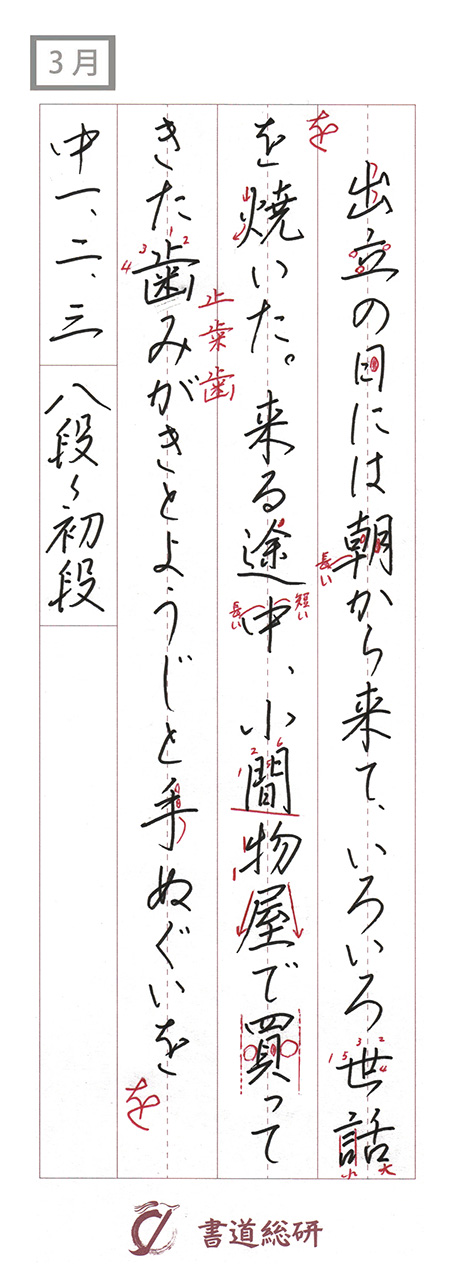 3月
出立の日には朝から来て、いろいろ世話
を焼いた。来る途中、小間物屋で買って
きた歯みがきとようじと手ぬぐいを
中一、二、三
八段〜初段
を
長い
短い
長い
小
大
止
歯
を
書道総研